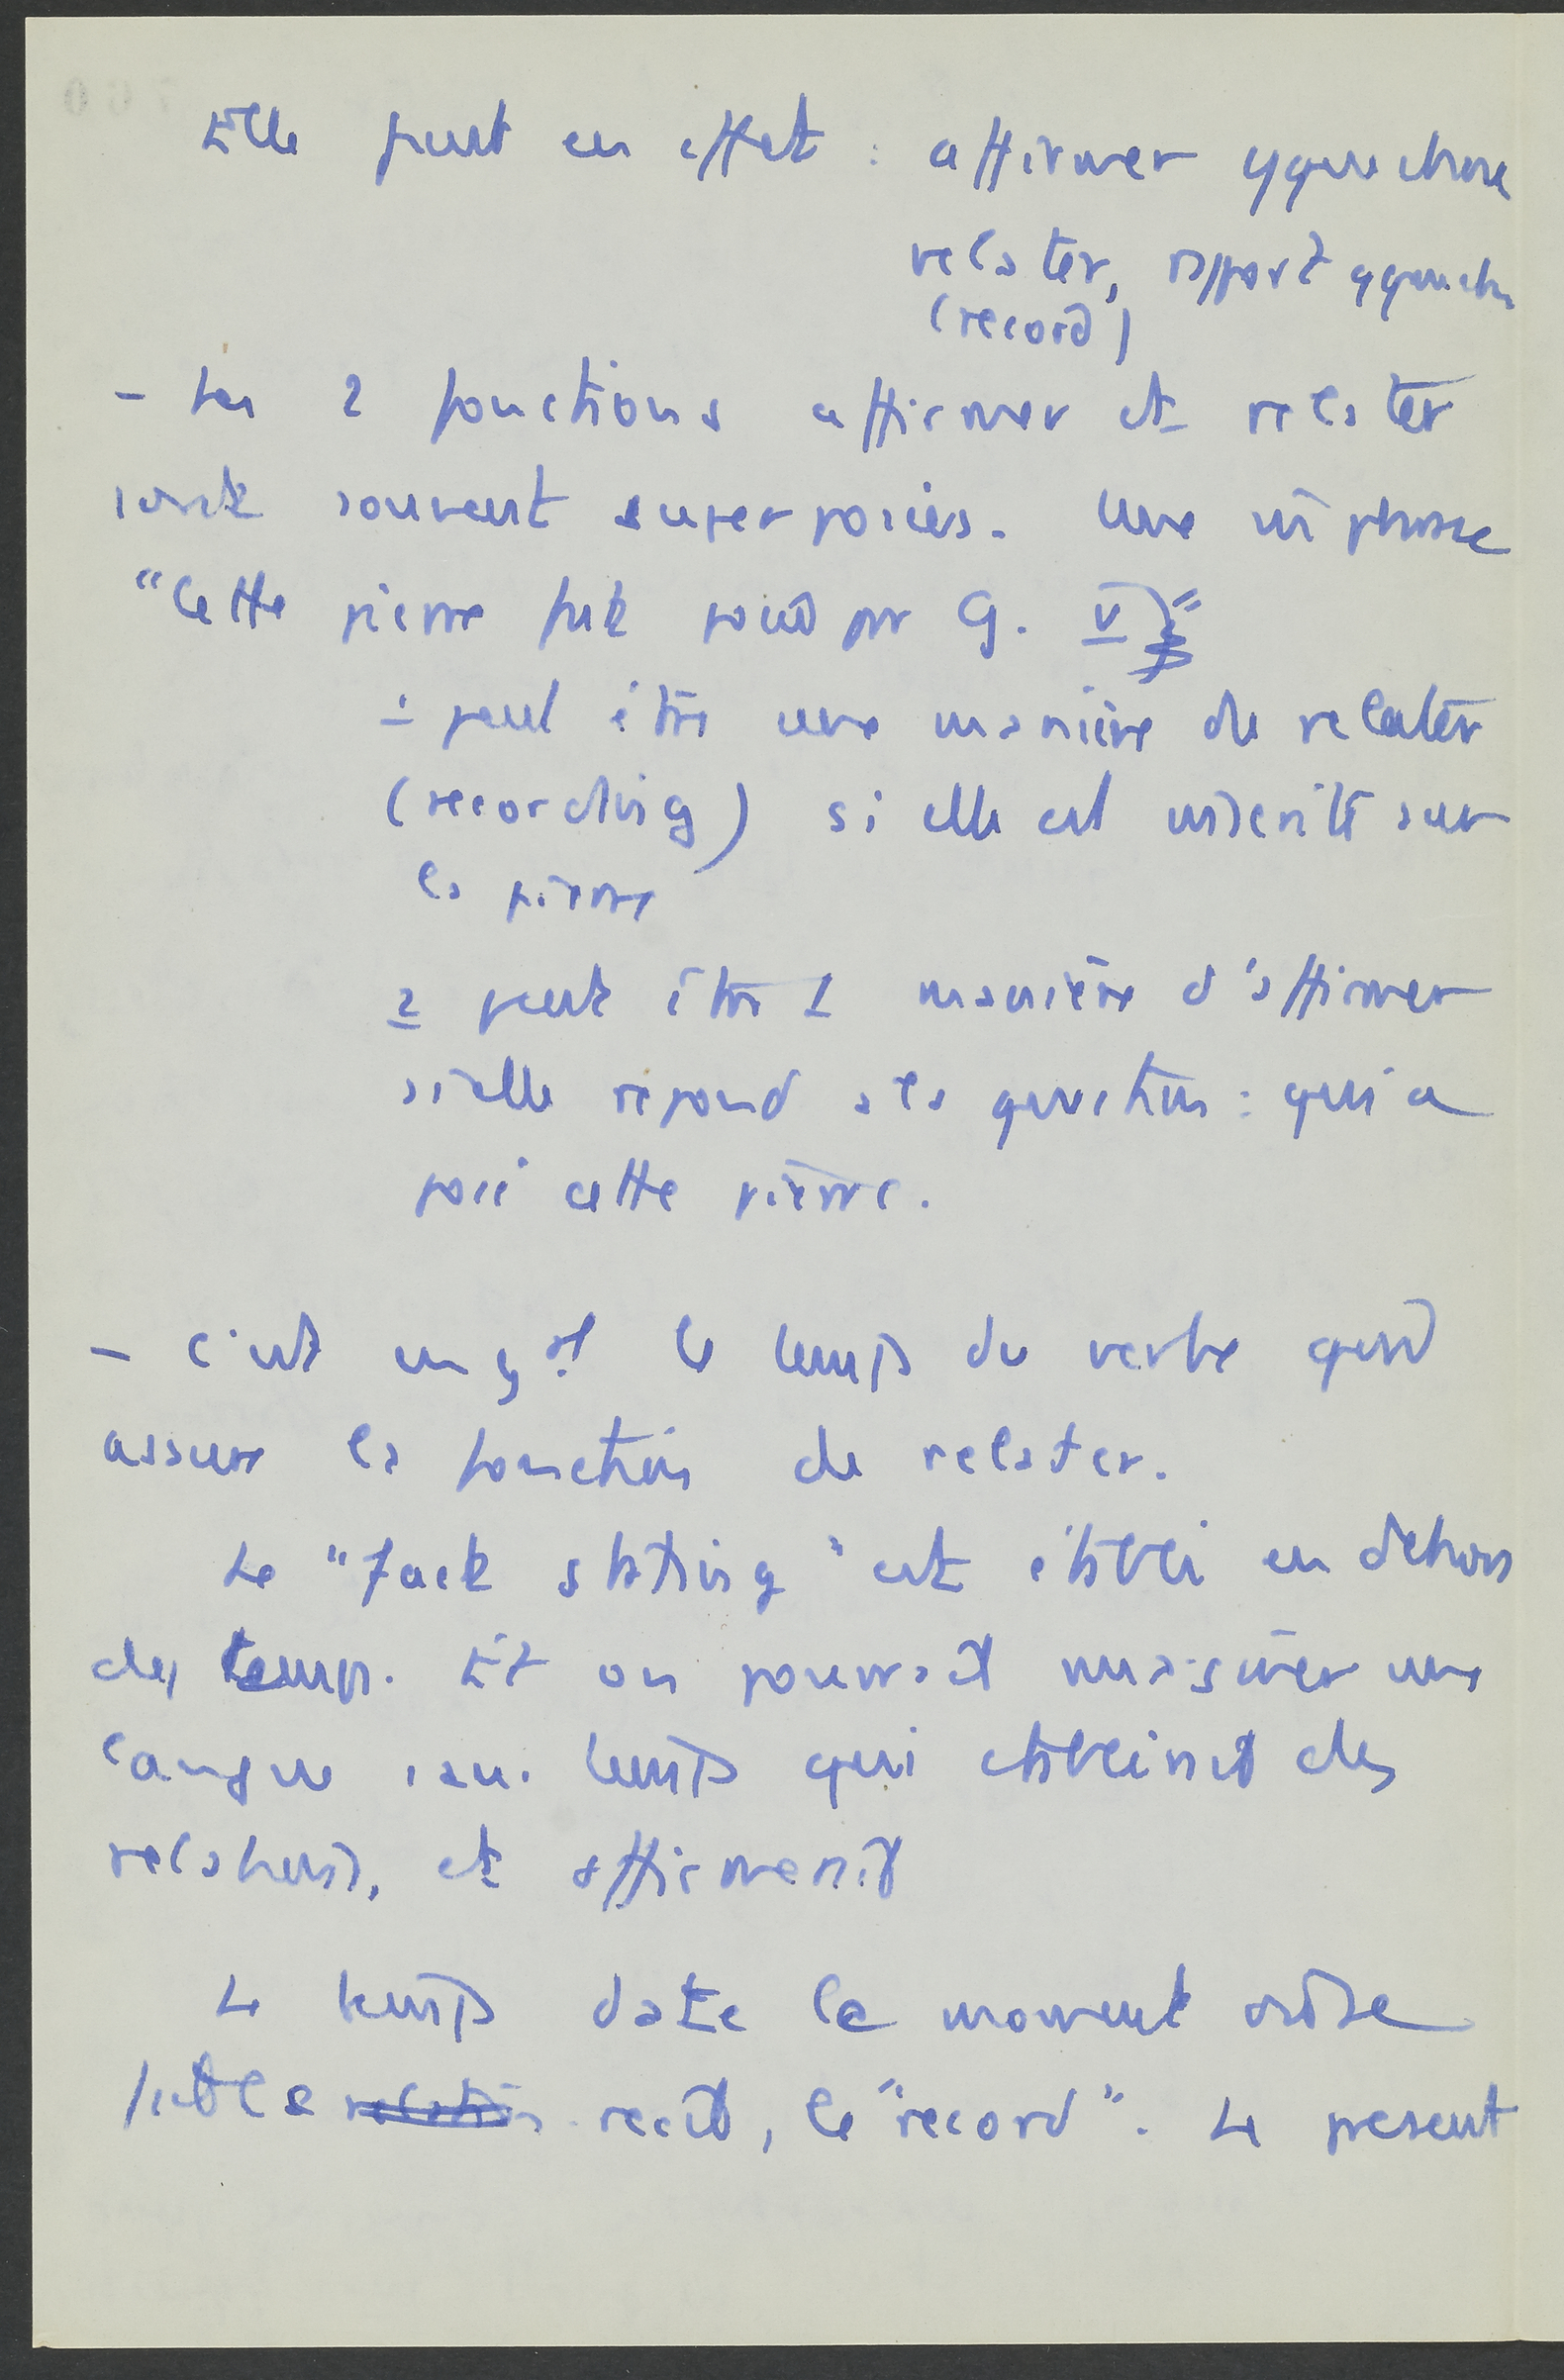 Elle peut en effet : affirmer qquechose
relater, rapport qquech
(record)
- Les 2 fonctions affirmer et relater
sont souvent superposées. Une m̂ phrase
"Cette pierre fut posée par G. V"
1 peut être une manière de relater
(recording) si elle est inscrite sur
la pierre
2 peut être 1 manière d'affirmer
si elle répond à la question : qui a
posé cette pierre.
- C'est en gal le temps du verbe qui
assure la fonction de relater.
Le "fact stating" est établi en dehors
des temps. Et on pourrait imaginer une
langue sans temps qui établirait des
relations, et affirmerait
Le temps date le moment où se
récit, le "record". Le présent